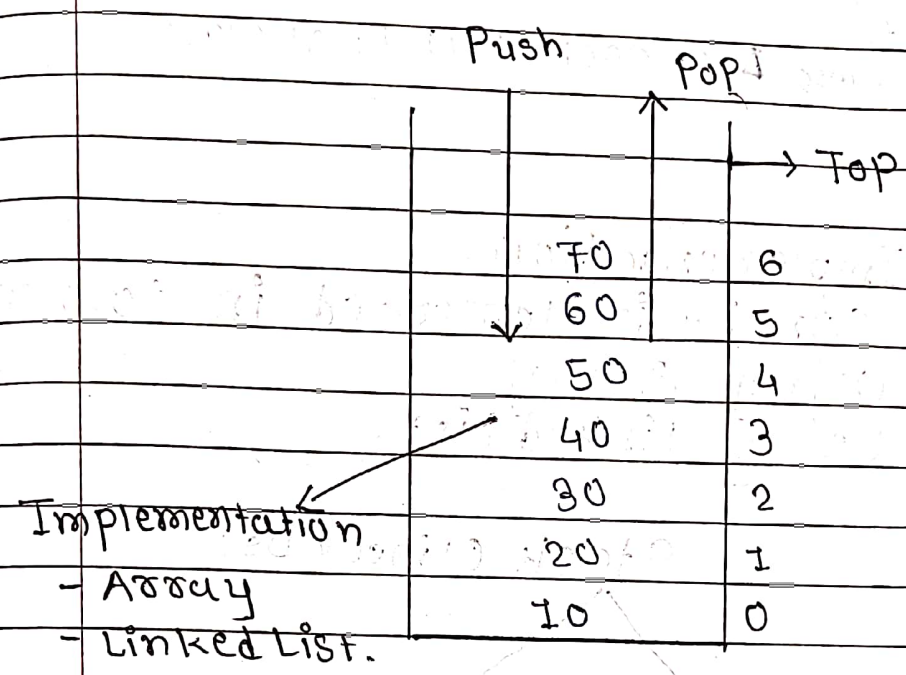 Push
Pop
Top
70 6
60 5
50 4
40 3
30 2
Implementation
20 1
- Array
10 0
- Linked List.